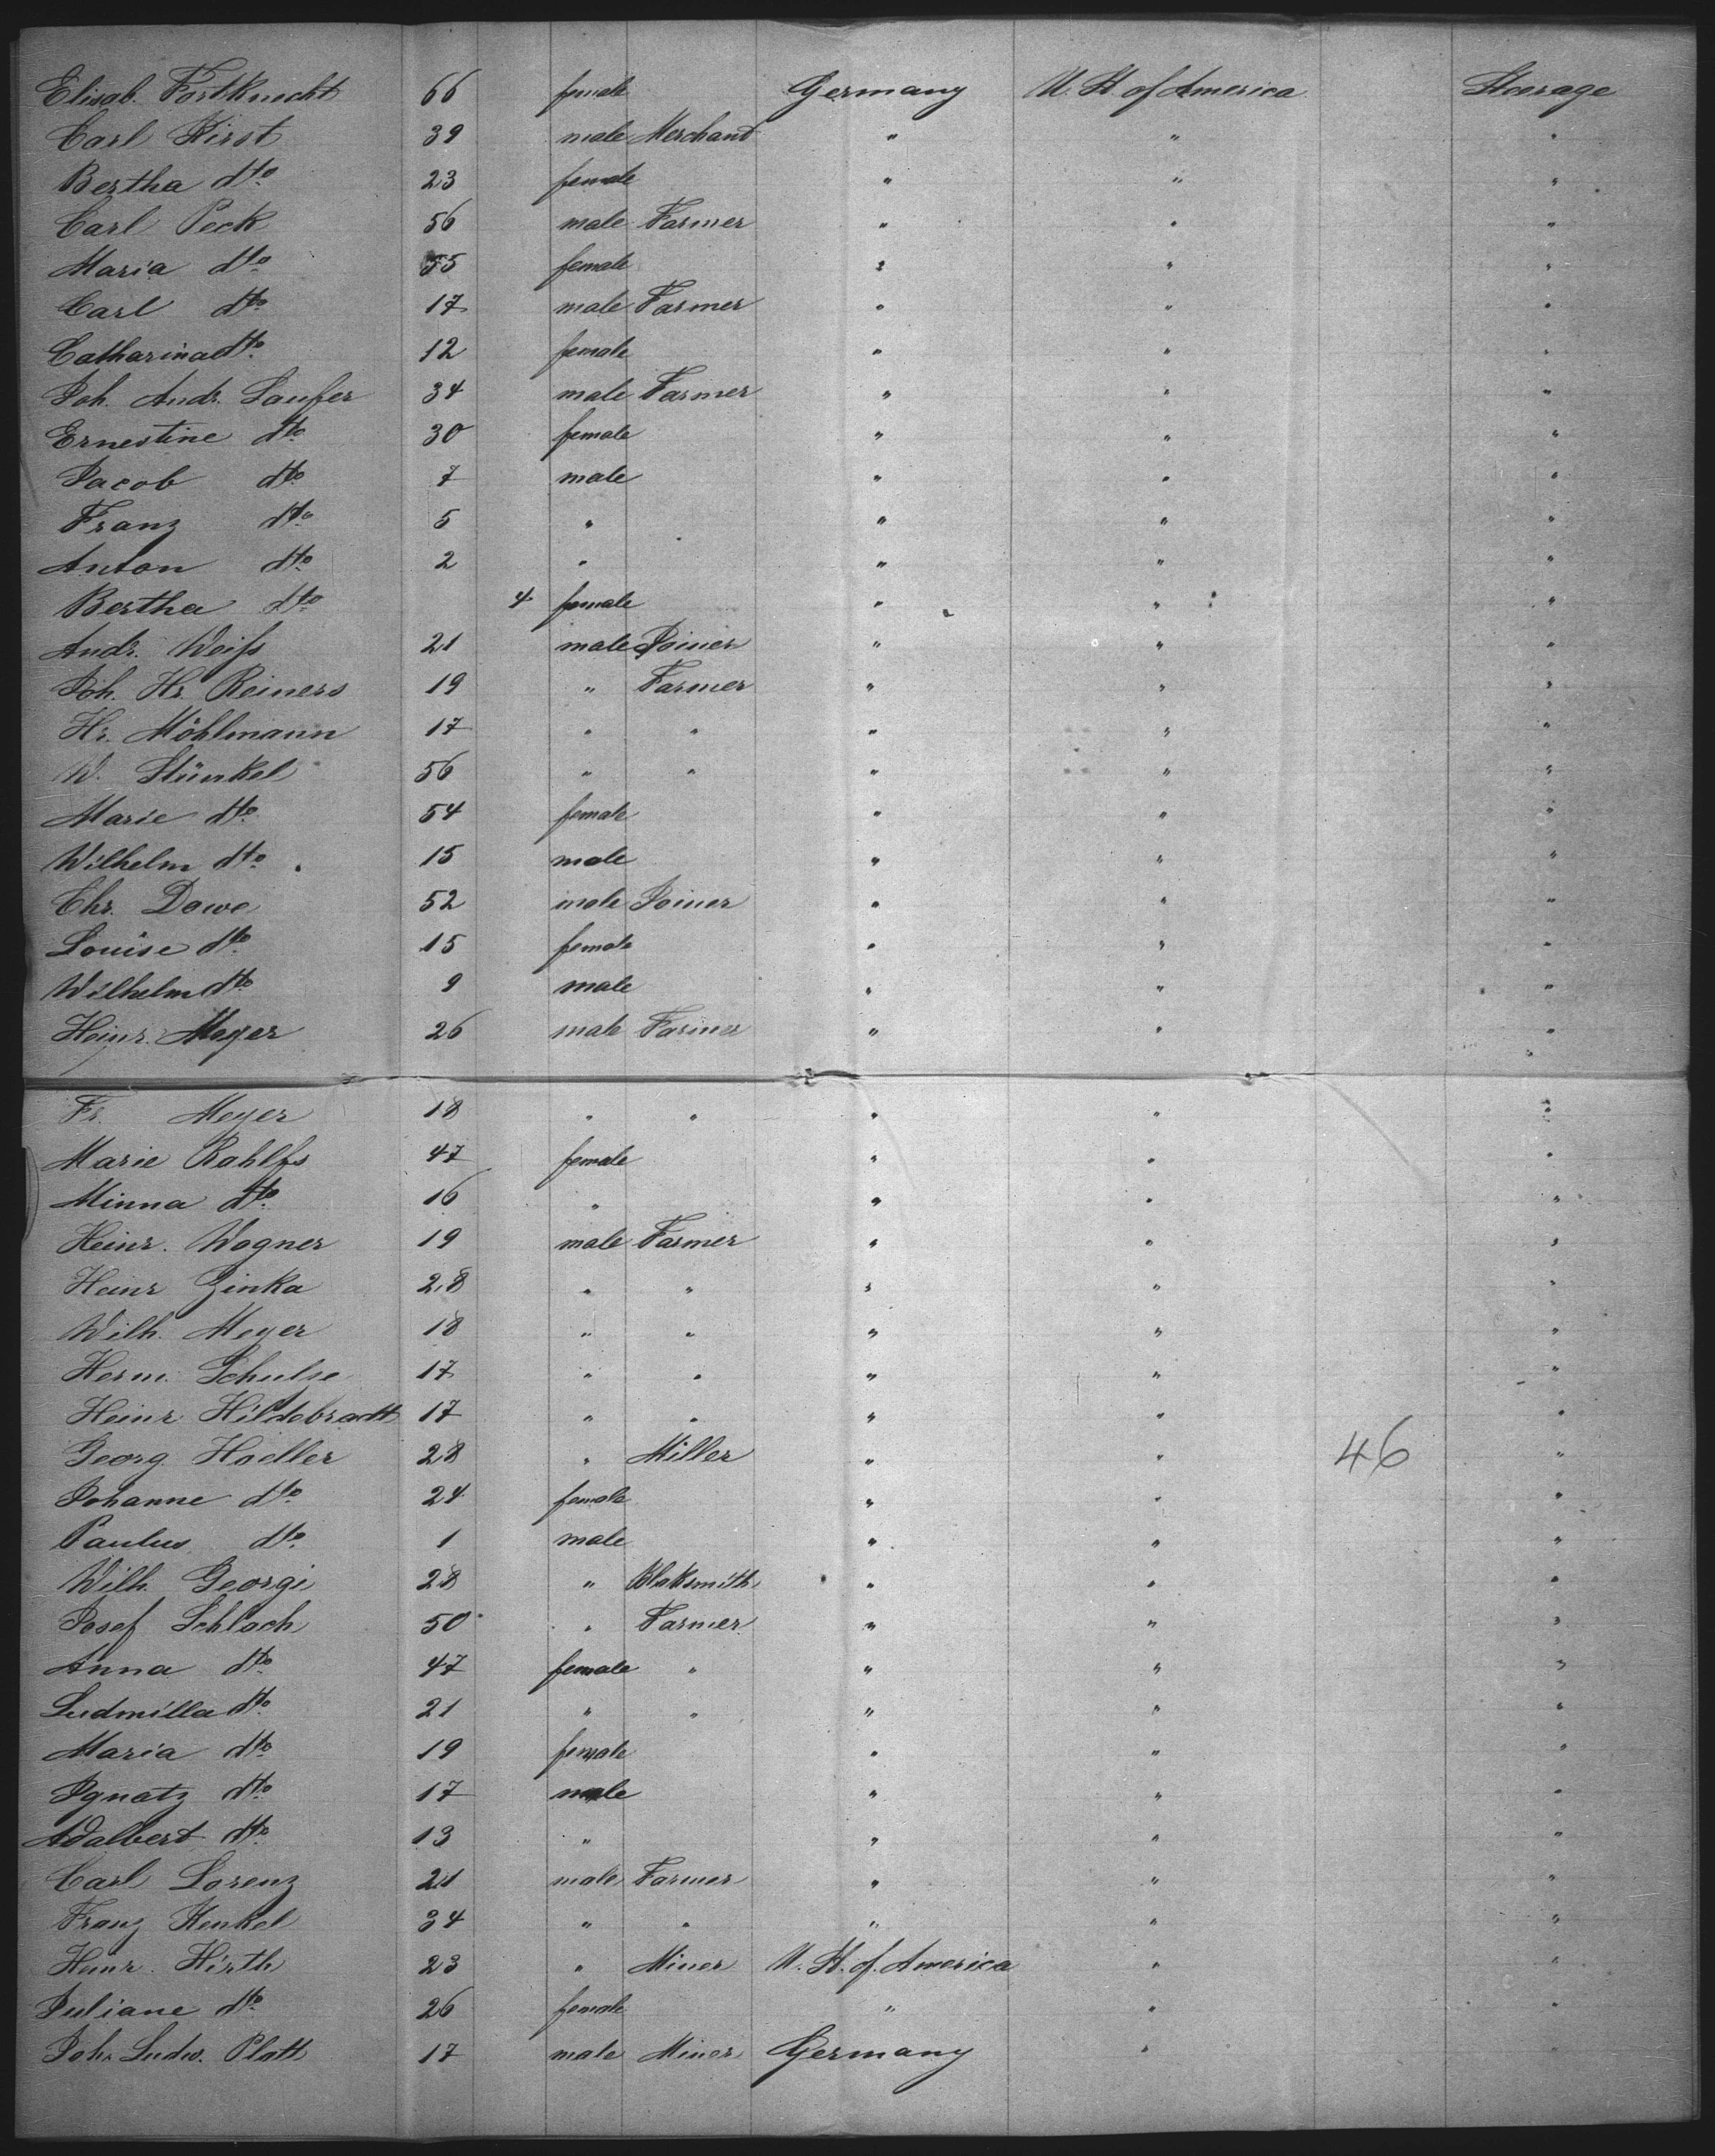 Elisab. Fortknecht 66 female Germany U. St. of America Steerage
Carl Kirst 39 male Merchant " " "
Bertha dto 23 female " " "
Carl Peck 56 male Farmer " " "
Maria dto 55 female " " "
Carl dto 17 male Farmer " " "
Catharina dto 12 female " " "
Joh. Andr. Laufer 34 male Farmer " " "
Ernestine dto 30 female " " "
Jacob dto 7 male " " "
Franz dto 5 " " " "
Anton dto 2 " " " "
Bertha dto 4 female " " "
Andr. Weiss 21 male Joiner " " "
Joh. Hr. Reiners 19 " Farmer " " "
Hr. Möhlmann 17 " " " " "
W. Stünkel 56 " " " " "
Marie dto 54 female " " "
Wilhelm dto 15 male " " "
Chr. Dowe 52 male Joiner " " "
Louise dto 15 female " " "
Wilhelm dto 9 male " " "
Heinr. Meyer 26 male Farmer " " "
Fr. Meyer 18 " " " " "
Marie Rahlfs 47 female " " "
Minna dto 16 " " " "
Heinr. Wagner 19 male Farmer " " "
Heinr Zinka 28 " " " " "
Wilh. Meyer 18 " " " " "
Herm. Schulze 17 " " " " "
Heinr Hildebradt 17 " " " " "
Georg Hadler 28 " Miller " " 46 "
Johanne dto 24 female " " "
Paulus dto 1 male " " "
Wilh. Georgi 28 " Blaksmith " " "
Josef Schlach 50 " Farmer " " "
Anna dto 47 female " " " "
Ludmilla dto 21 " " " " "
Maria dto 19 female " " "
Ignatz dto 17 male " " "
Adalbert dto 13 " " " "
Carl Lorenz 21 male Farmer " " "
Franz Henkel 34 " " " " "
Heinr. Hirth 23 " Miner U. St. of. America " "
Juliane dto 26 female " " "
Joh. Ludw. Platt 17 male Miner Germany "